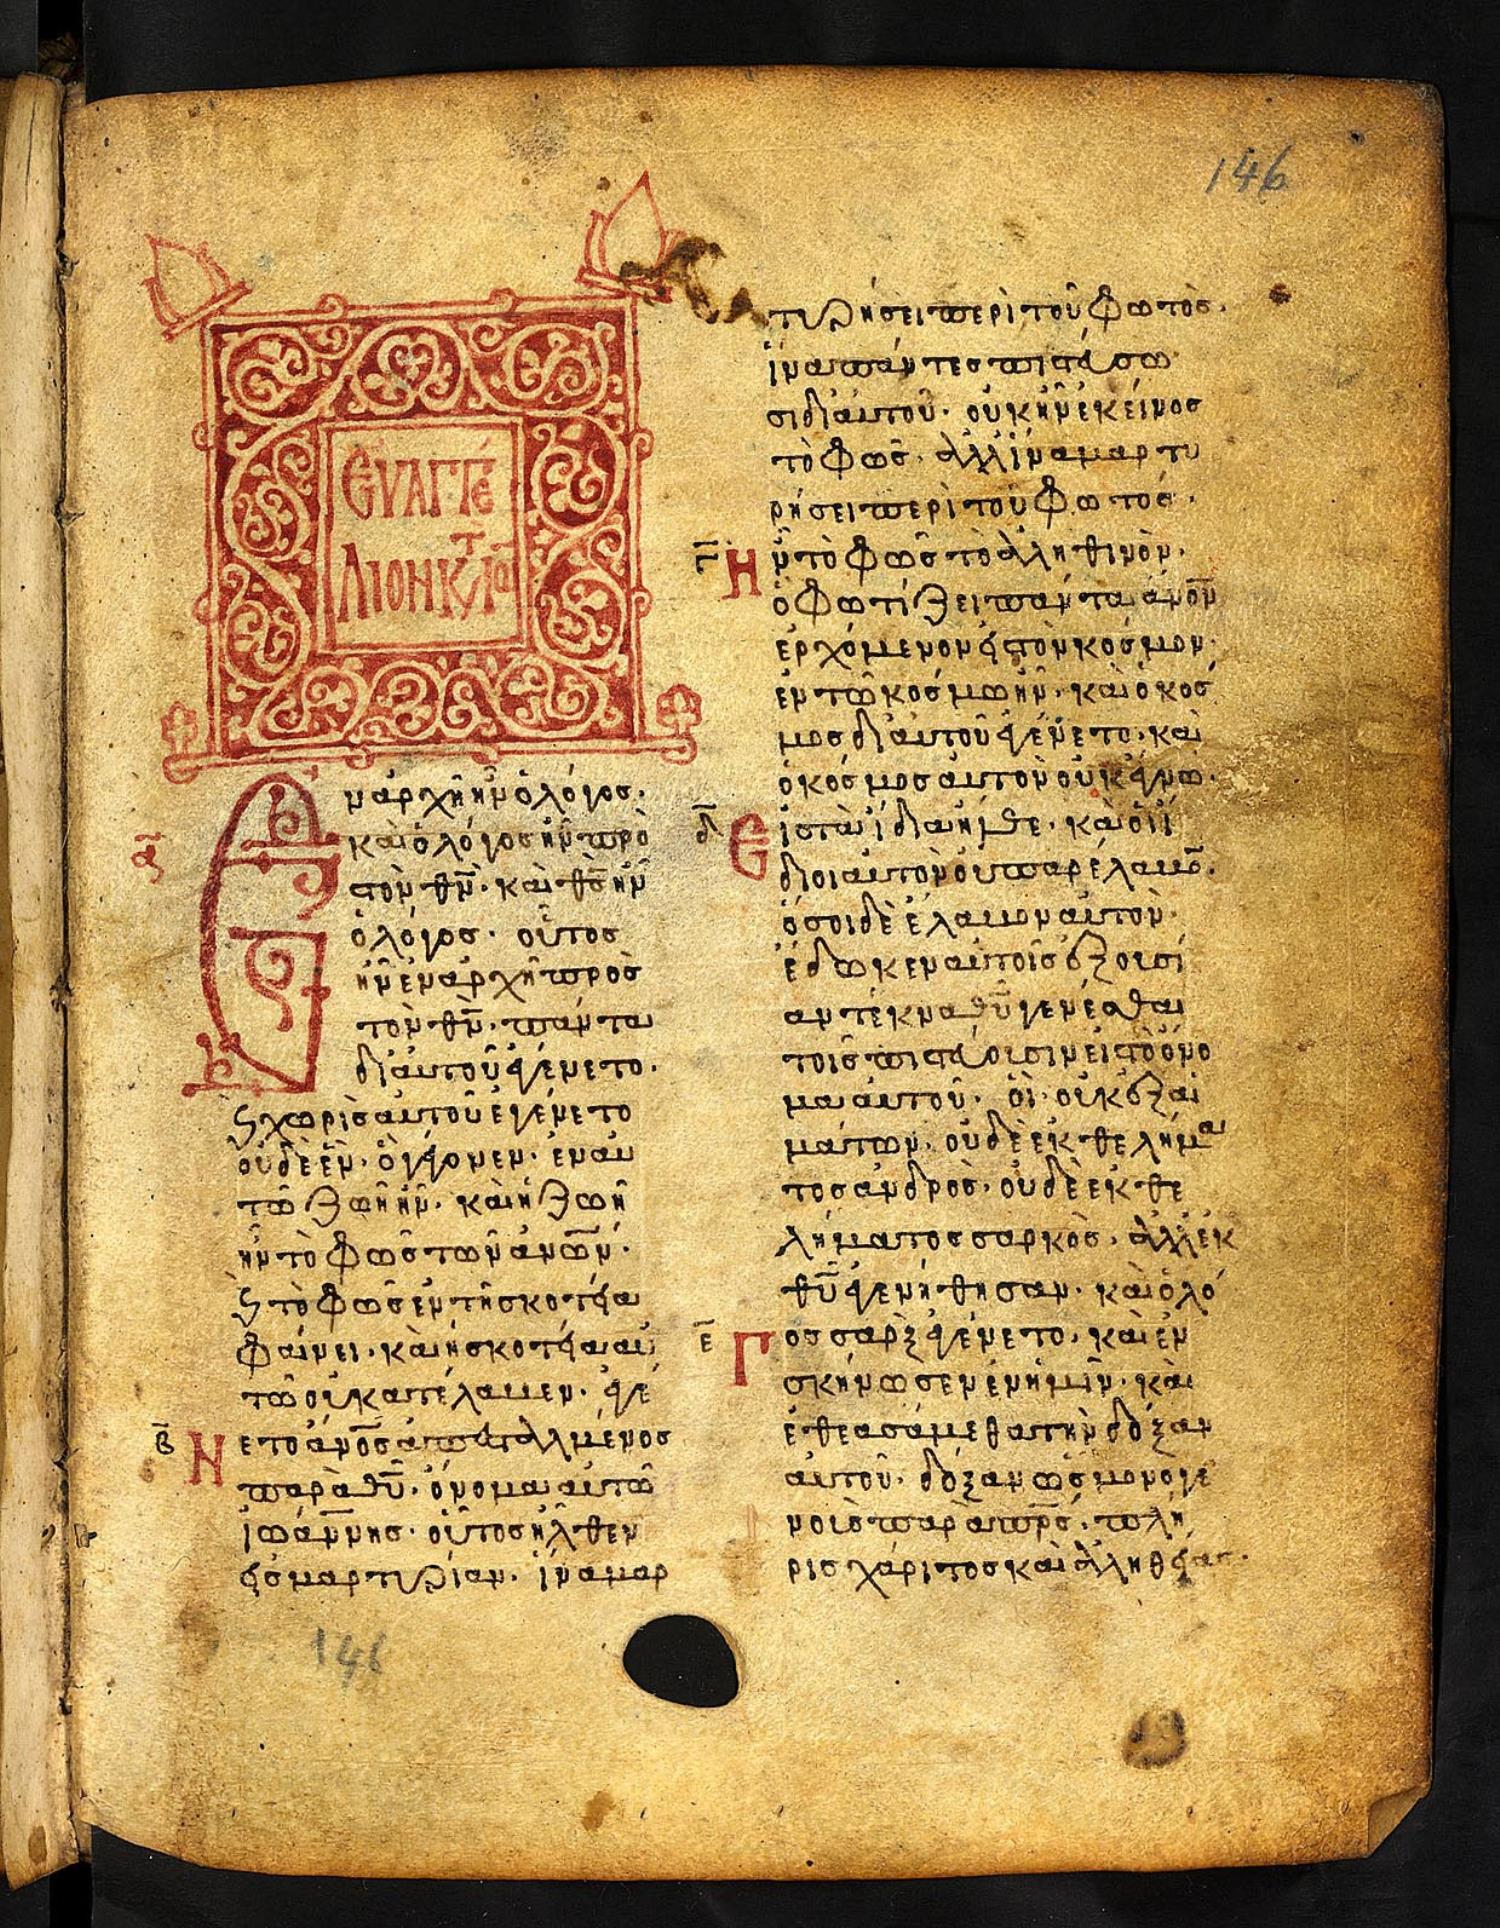 146
ΕΥΑΓΓΕ
ΛΙΟΝ Κ͞Τ ΙΩ
α̅
Ἐν ἀρχῆ ἦν ὁ λόγος·
καὶ ὁ λόγος ἦν πρὸ
σ τὸν θ̅ν̅· καὶ θ̅ς̅ ἦν
ὁ λόγος· οὗτος
ἦν ἐν ἀρχῆ πρὸς
τὸν θ̅ν̅· πάντα
δι αὐτοῦ ἐγένετο·
ϗ χωρὶς αὐτοῦ ἐγένετο
οὐδὲ ἓν· ὃ γέγονεν· ἐν αυ
τῶ ζωὴ ἦν· καὶ ἡ ζωὴ
ἦν τὸ φῶς τῶν ἀν̅ω̅ν·
ϗ τὸ φῶς ἐν τῆ σκοτεία
φαίνει· καὶ ἡ σκοτεία αὐ
τῶ οὐ κατέλαβεν· ἐγέ
β̅
Νετο ἀν̅ο̅ς ἀποστελλμένος
παρὰ θ̅υ̅· ὄνομα αὐτῶ
ἰωάννης· οὗτος ἦλθεν
εἰς μαρτυρίαν· ἵνα μαρ
τυρήσει περὶ τοῦ φωτὸς·
ἵνα πάντες πιστεύσω
σι δι αὐτοῦ· οὐκ ἦν ἐκεῖνος
τὸ φῶς· ἀλλ ἵνα μαρτυ
ρήσει περὶ τοῦ φωτός·
γ̅
Ἦν τὸ φῶς τὸ ἀληθινὸν·
ὃ φωτίζει πάντα ἀν̅ο̅ν
ἐρχόμενον εἰς τὸν κόσμον·
ἐν τῶ κόσμω ἦν· καὶ ὁ κόσ
μος δι αὐτοῦ ἐγένετο· καὶ
ὁ κόσμος αὐτὸν οὐκ ἔγνω·
δ̅
Εἰς τὰ ἴδια ἦλθε· καὶ οἱ ἴ
διοι αὐτὸν οὐ παρέλαβο̅·
ὅσοι δὲ ἔλαβον αὐτὸν·
ἔδωκεν αὐτοῖς ἐξουσί
αν τέκνα θ̅υ̅ γενέσθαι
τοῖς πιστεύουσιν εἰς τὸ ὄνο
μα αὐτοῦ· οἳ οὐκ ἐξ αἱ
μάτων· οὐδὲ ἐκ θελήμα
τος ἀνδρὸς· οὐδὲ ἐκ θε
λήματος σαρκὸς· ἀλλ ἐκ
θ̅υ̅ ἐγενήθησαν· καὶ ὁ λό
ε̅
Γος σαρξ ἐγένετο· καὶ ἐν
σκήνωσεν ἐν ἡμῖν· καὶ
ἐθεασάμεθα τὴν δόξαν
αὐτοῦ· δόξαν ὡς μονογε
νοῦς παρὰ π̅ρ̅ς̅· πλή
ρις χάριτος καὶ ἀληθείας·
146